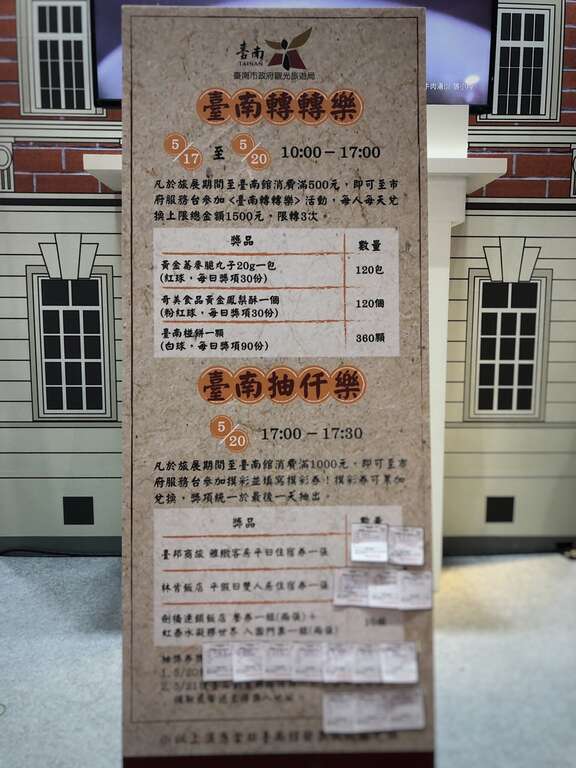 臺南
TAINAN
臺南市政府觀光旅遊局
臺南轉轉樂
5/17 至 5/20 10:00-17:00
凡於旅展期間至臺南館消費滿500元，即可至市
府服務台參加<臺南轉轉樂>活動，每人每天兌
換上限總金額1500元，限轉3次。
獎品 數量
黃金蕎麥脆丸子20g一包 120包
(紅球，每日獎項30份)
奇美食品黃金鳳梨酥一個 120個
(粉紅球，每日獎項30份)
臺南椪餅一顆 360顆
(白球，每日獎項90份)
臺南抽仟樂
5/20 17:00-17:30
凡於旅展期間至臺南館消費滿1000元，即可至市
府服務台參加摸彩並填寫摸彩券！摸彩券可累加
兌換，獎項統一於最後一天抽出。
獎品 數量
臺邦商旅 雅緻客房平日住宿券一張
林肯飯店 平假日雙人房住宿券一張
劍橋連鎖飯店 餐券一組(兩張)+
紅泰水凝膠世界 入園門票一組(兩張)
抽獎券
1. 5/20
2. 5/21